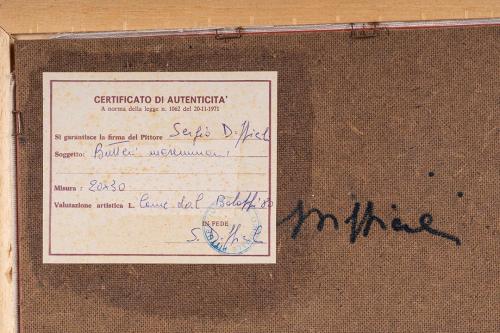 CERTIFICATO DI AUTENTICITA'
A norma della legge n. 1062 del 20-11-1971
Si garantisce la firma del Pittore Sergio Difficili
Soggetto: Butteri maremmani
Misura : 20x30
Valutazione artistica L. Come dal Bolaffi 80
IN FEDE
S. Difficili
Difficili